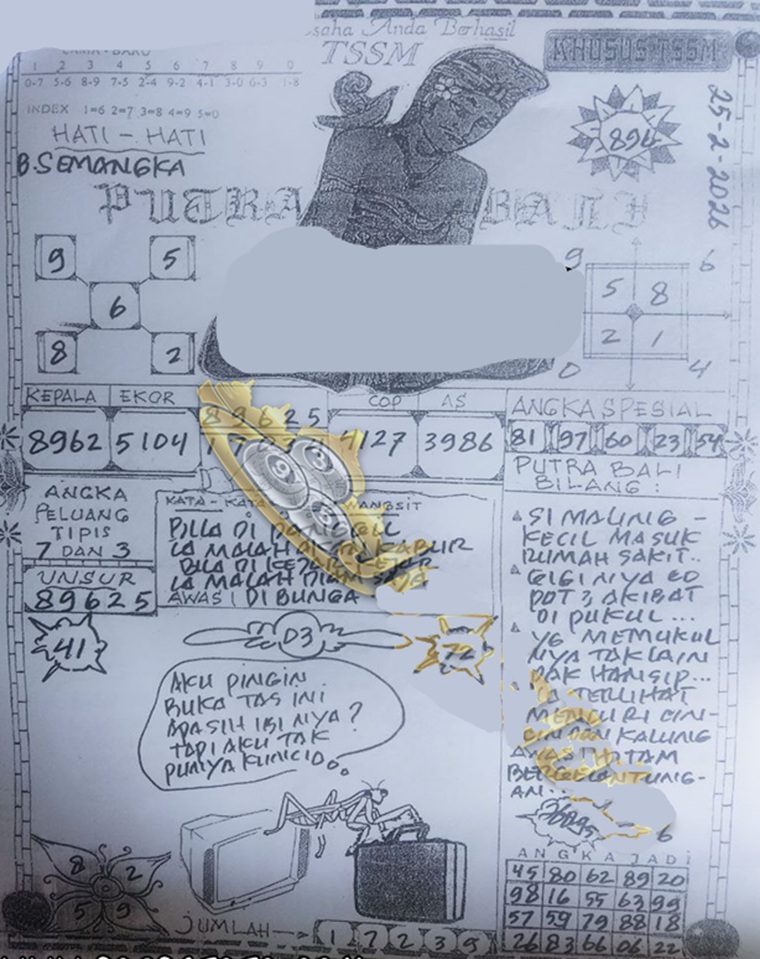 saha Anda Berhasil
TSSM
KHUSUS TSSM
LAMA - BARU
1 2 3 4 5 6 7 8 9 0
0-7 5-6 8-9 7-5 2-4 9-2 4-1 3-0 6-3 1-8
INDEX 1=6 2=7 3=8 4=9 5=0
HATI - HATI
B.SEMANGKA
894
25-2-2026
PUTRA BALI
9 5
6
8 2
9 6
5 8
2 1
0 4
KEPALA EKOR
COP AS
8962 5104
89625
4127 3986
ANGKA SPESIAL
81 97 60 23 54
PUTRA BALI
BILANG :
ANGKA
PELUANG
TIPIS
7 DAN 3
UNSUR
89625
KATA - KATA WANGSIT
BILA DI
LA MALAH KABUR
BILA DI KEJER
LA MALAH DIAM SAJA
AWAS! DI BUNGA
SI MALING -
KECIL MASUK
RUMAH SAKIT..
GIGI NIYA CO
POT 3, AKIBAT
DI PUKUL...
YG MEMUKUL
NYA TAK LAIN
PAK HANSIP...
IA TERLIHAT
MENCURI CIN-
CIN DAN KALUNG
AWAS HITAM
BERGELANTUNG-
AN..
41
D3
72
AKU PINGIN
BUKA TAS INI
APA SIH ISI NYA?
TAPI AKU TAK
PUNYA KUNCI
6
8 2
5 9
ANGKA JADI
45 80 62 89 20
98 16 55 63 99
57 59 79 88 18
26 83 66 06 22
JUMLAH 1 7 2 3 9